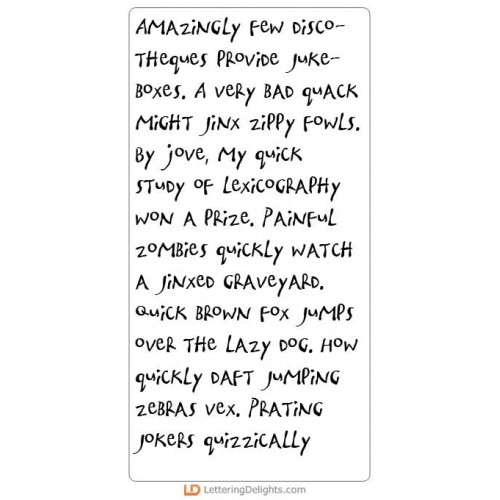 Amazingly few disco-
theques provide juke-
boxes. A very bad quack
might jinx zippy fowls.
By jove, my quick
study of lexicography
won a prize. Painful
zombies quickly watch
a jinxed graveyard.
Quick brown fox jumps
over the lazy dog. How
quickly daft jumping
zebras vex. Prating
jokers quizzically
LD LetteringDelights.com